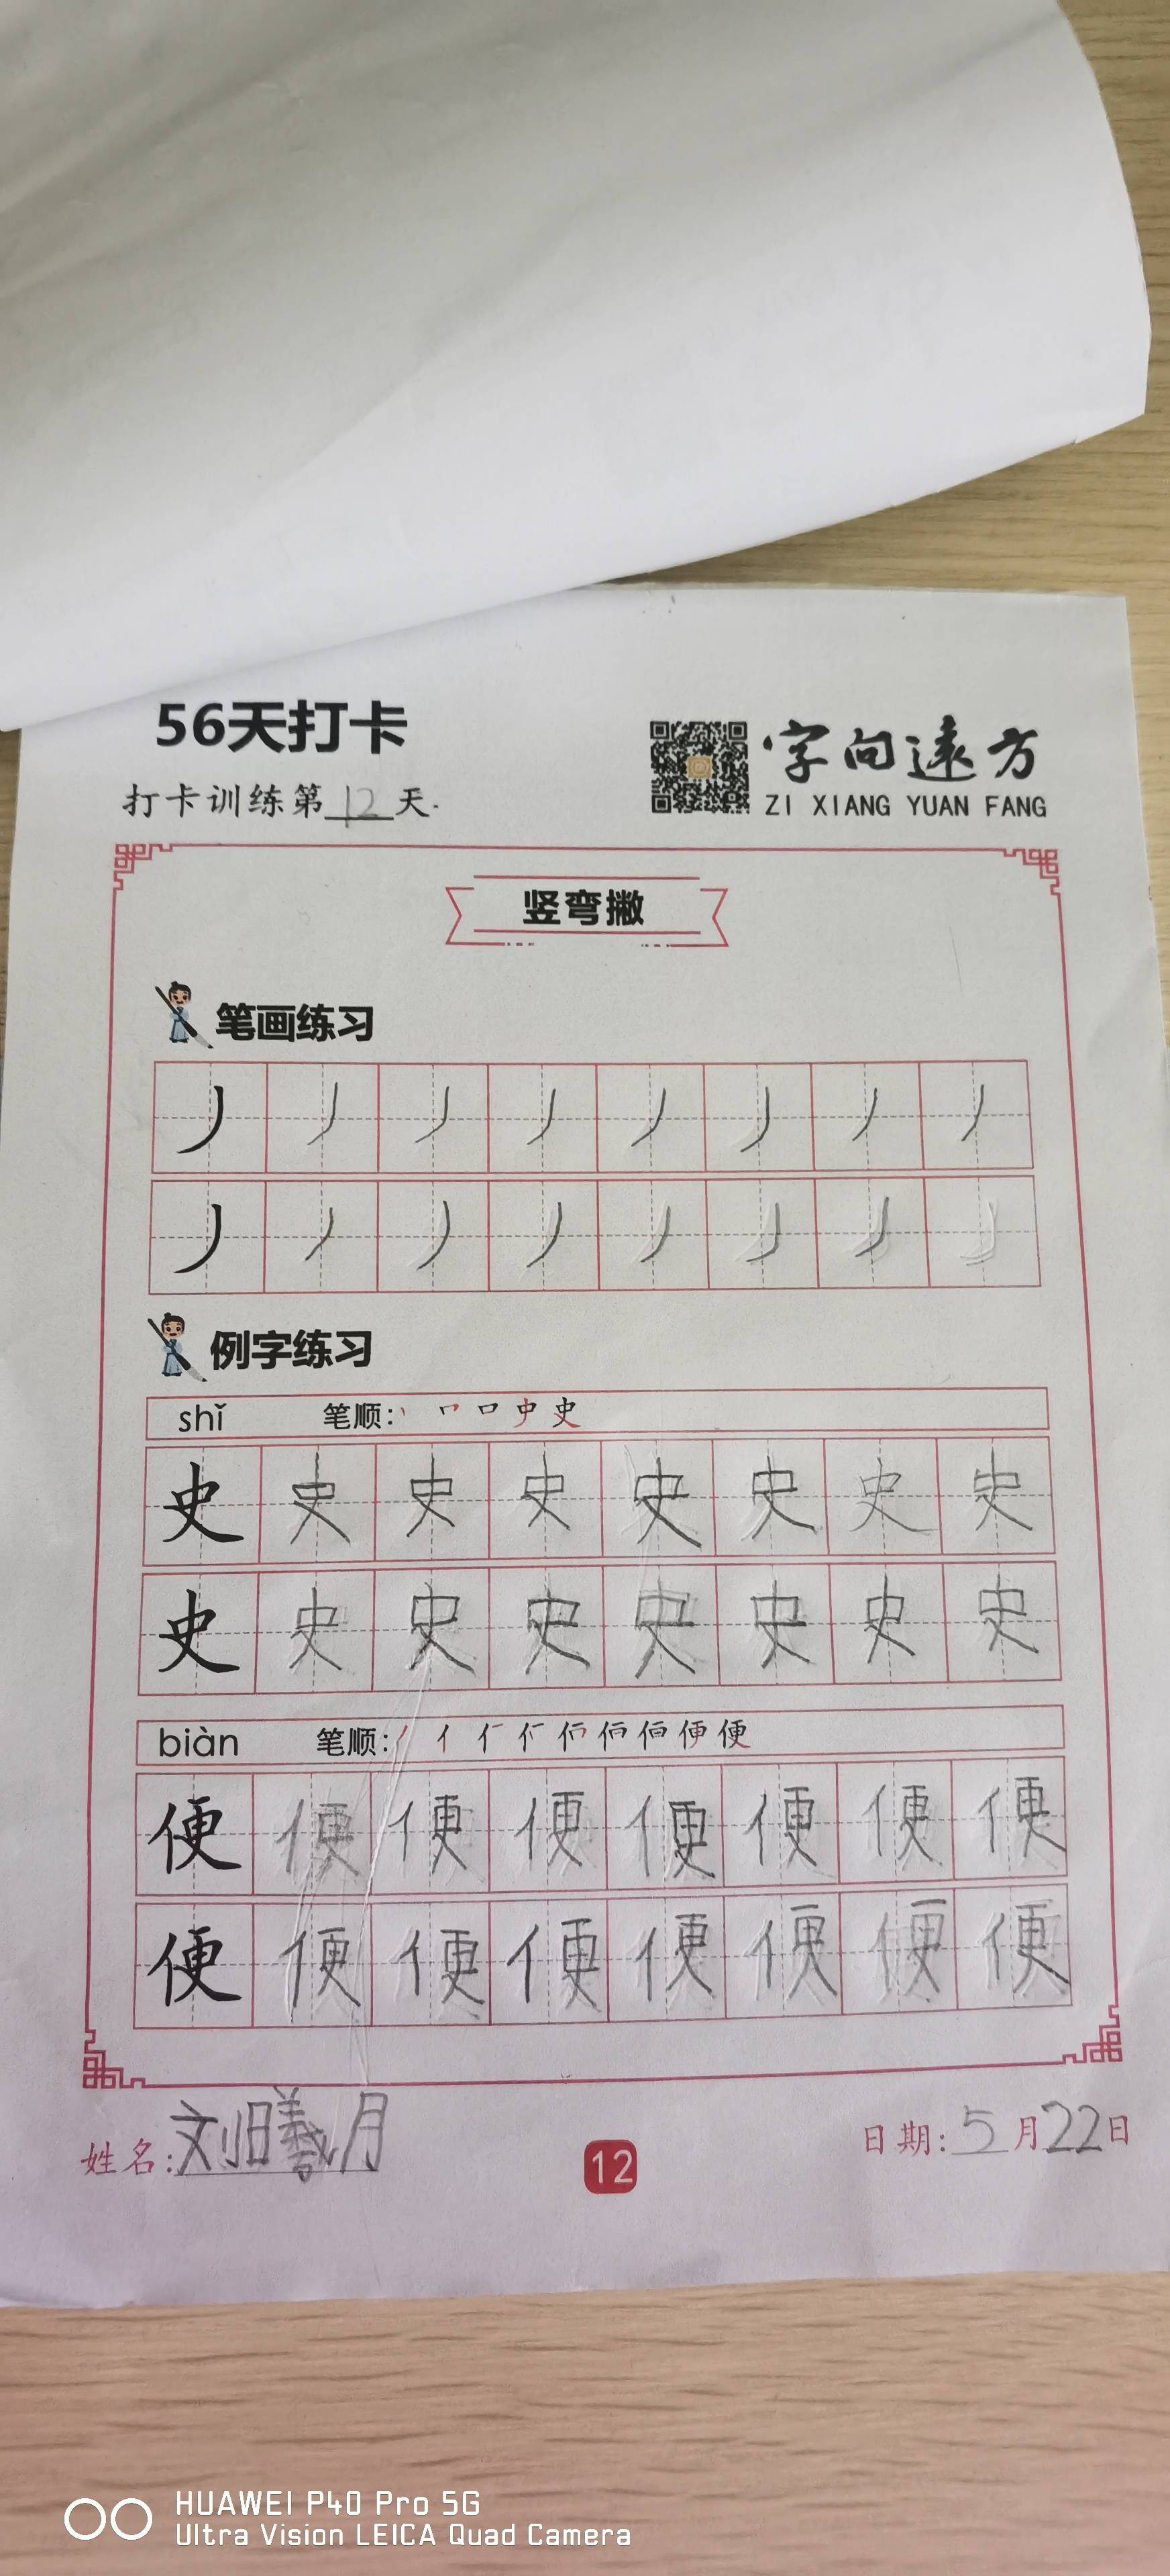 56天打卡
打卡训练第12天.
字向遠方
ZI XIANG YUAN FANG
竖弯撇
笔画练习
丿 丿 丿 丿 丿 丿 丿 丿
丿 丿 丿 丿 丿 丿 丿
例字练习
shǐ 笔顺: 丨 口 史
史 史 史 史 史 史 史 史
史 史 史 史 史 史 史 史
biàn 笔顺: 丿 亻 便
便 便 便 便 便 便 便 便
便 便 便 便 便 便 便 便
姓名:刘曦月
12
日期:5月22日
HUAWEI P40 Pro 5G
Ultra Vision LEICA Quad Camera